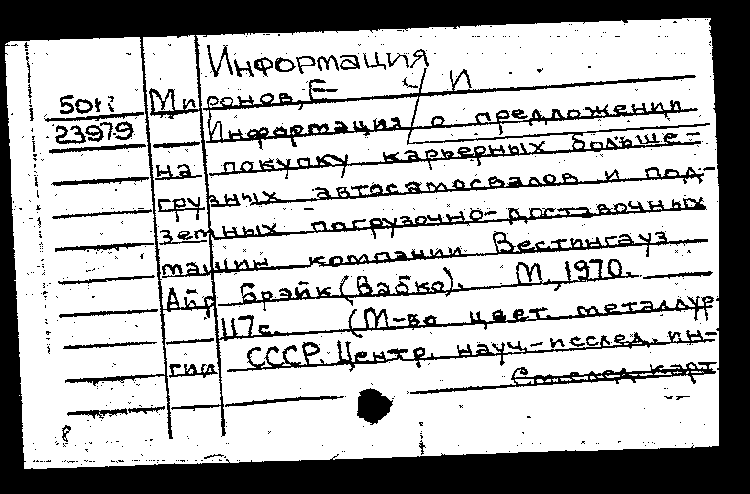 Информация
И
50н:
Миронов, Е
23979
Информация о предложении
на покупку карьерных больше-
грузных автосамосвалов и под-
земных погрузочно-доставочных
машин компании Вестингауз
Айр Брэйк (Вабко). М, 1970.
117с. (М-во цвет. металлур-
гии СССР. Центр. науч.-исслед. ин-
См.след.карт